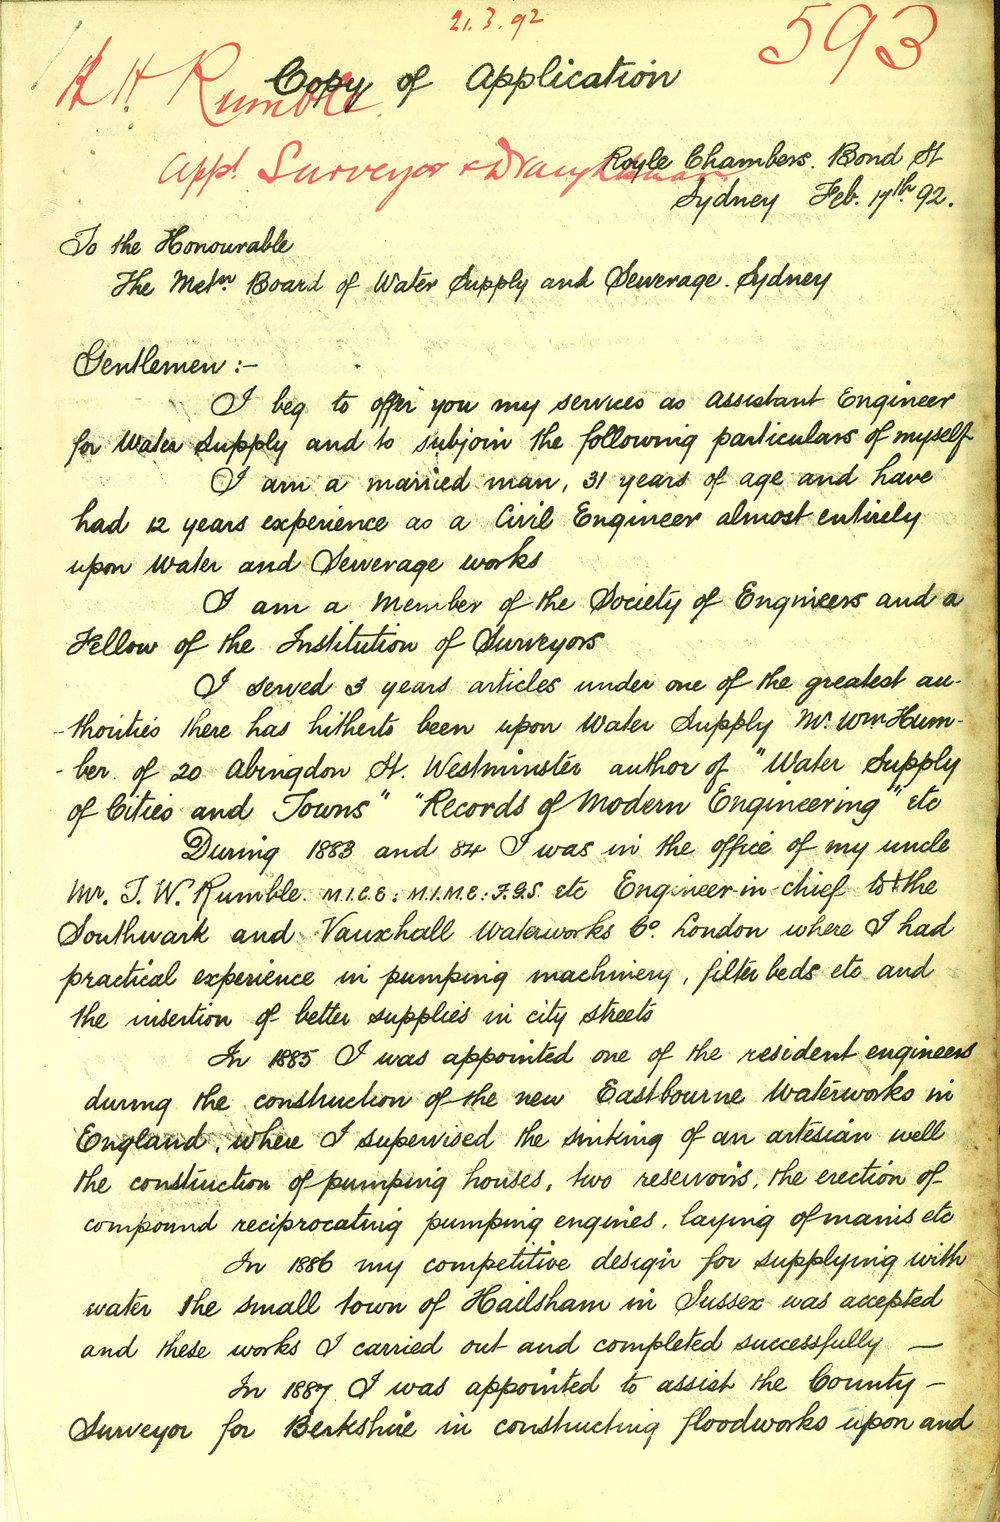 21.3.92
593
H H Rumble
Copy of Application
Appt. Surveyor & Draughtsman
Royle Chambers. Bond St
Sydney Feb. 17th. 92.
To the Honourable
The Metn Board of Water Supply and Sewerage. Sydney
Gentlemen :-
I beg to offer you my services as Assistant Engineer
for Water Supply and to subjoin the following particulars of myself
I am a married man, 31 years of age and have
had 12 years experience as a Civil Engineer almost entirely
upon Water and Sewerage works
I am a Member of the Society of Engineers and a
Fellow of the Institution of Surveyors
I served 3 years articles under one of the greatest au-
-thorities there has hitherto been upon Water Supply Mr. Wm Hum-
-ber. of 20 Abingdon St. Westminster author of "Water Supply
of Cities and Towns" "Records of Modern Engineering" etc
During 1883 and 84 I was in the office of my uncle
Mr. T. W. Rumble. M.I.C.E: M.I.M.E: F.G.S. etc Engineer-in-chief to the
Southwark and Vauxhall Waterworks Co. London where I had
practical experience in pumping machinery, filter beds etc and
the insertion of better supplies in city streets
In 1885 I was appointed one of the resident engineers
during the construction of the new Eastbourne Waterworks in
England, where I supervised the sinking of an artesian well
the construction of pumping houses, two reservoirs, the erection of
compound reciprocating pumping engines, laying of mains etc
In 1886 my competitive design for supplying with
water the small town of Hailsham in Sussex was accepted
and these works I carried out and completed successfully —
In 1887 I was appointed to assist the County -
Surveyor for Berkshire in constructing floodworks upon and